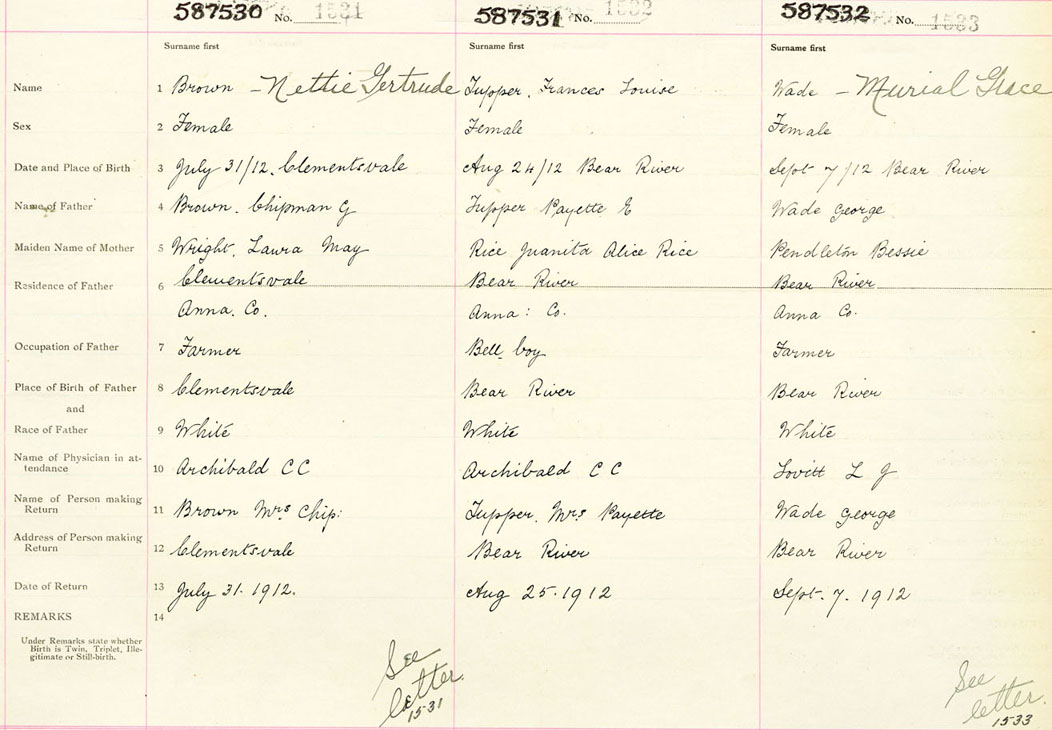 587530 No. 1531 587531 No. 1532 587532 No. 1533
Surname first Surname first Surname first
Name 1 Brown - Nettie Gertrude Tupper, Frances Louise Wade - Murial Grace
Sex 2 Female Female Female
Date and Place of Birth 3 July 31/12. Clementsvale Aug 24/12 Bear River Sept 7/12 Bear River
Name of Father 4 Brown. Chipman G Tupper Payette E Wade George
Maiden Name of Mother 5 Wright, Laura May Rice Juanita Alice Rice Pendleton Bessie
Residence of Father 6 Clementsvale Bear River Bear River
Anna. Co. Anna: Co. Anna Co.
Occupation of Father 7 Farmer Bell boy Farmer
Place of Birth of Father 8 Clementsvale Bear River Bear River
and
Race of Father 9 White White White
Name of Physician in at-
tendance 10 Archibald C C Archibald C C Lovitt L J
Name of Person making
Return 11 Brown Mrs Chip: Tupper, Mrs Payette Wade George
Address of Person making
Return 12 Clementsvale Bear River Bear River
Date of Return 13 July 31. 1912. Aug 25.1912 Sept. 7. 1912
REMARKS 14
Under Remarks state whether
Birth is Twin, Triplet, Ille-
gitimate or Still-birth.
See
letter.
1531
See
letter.
1533